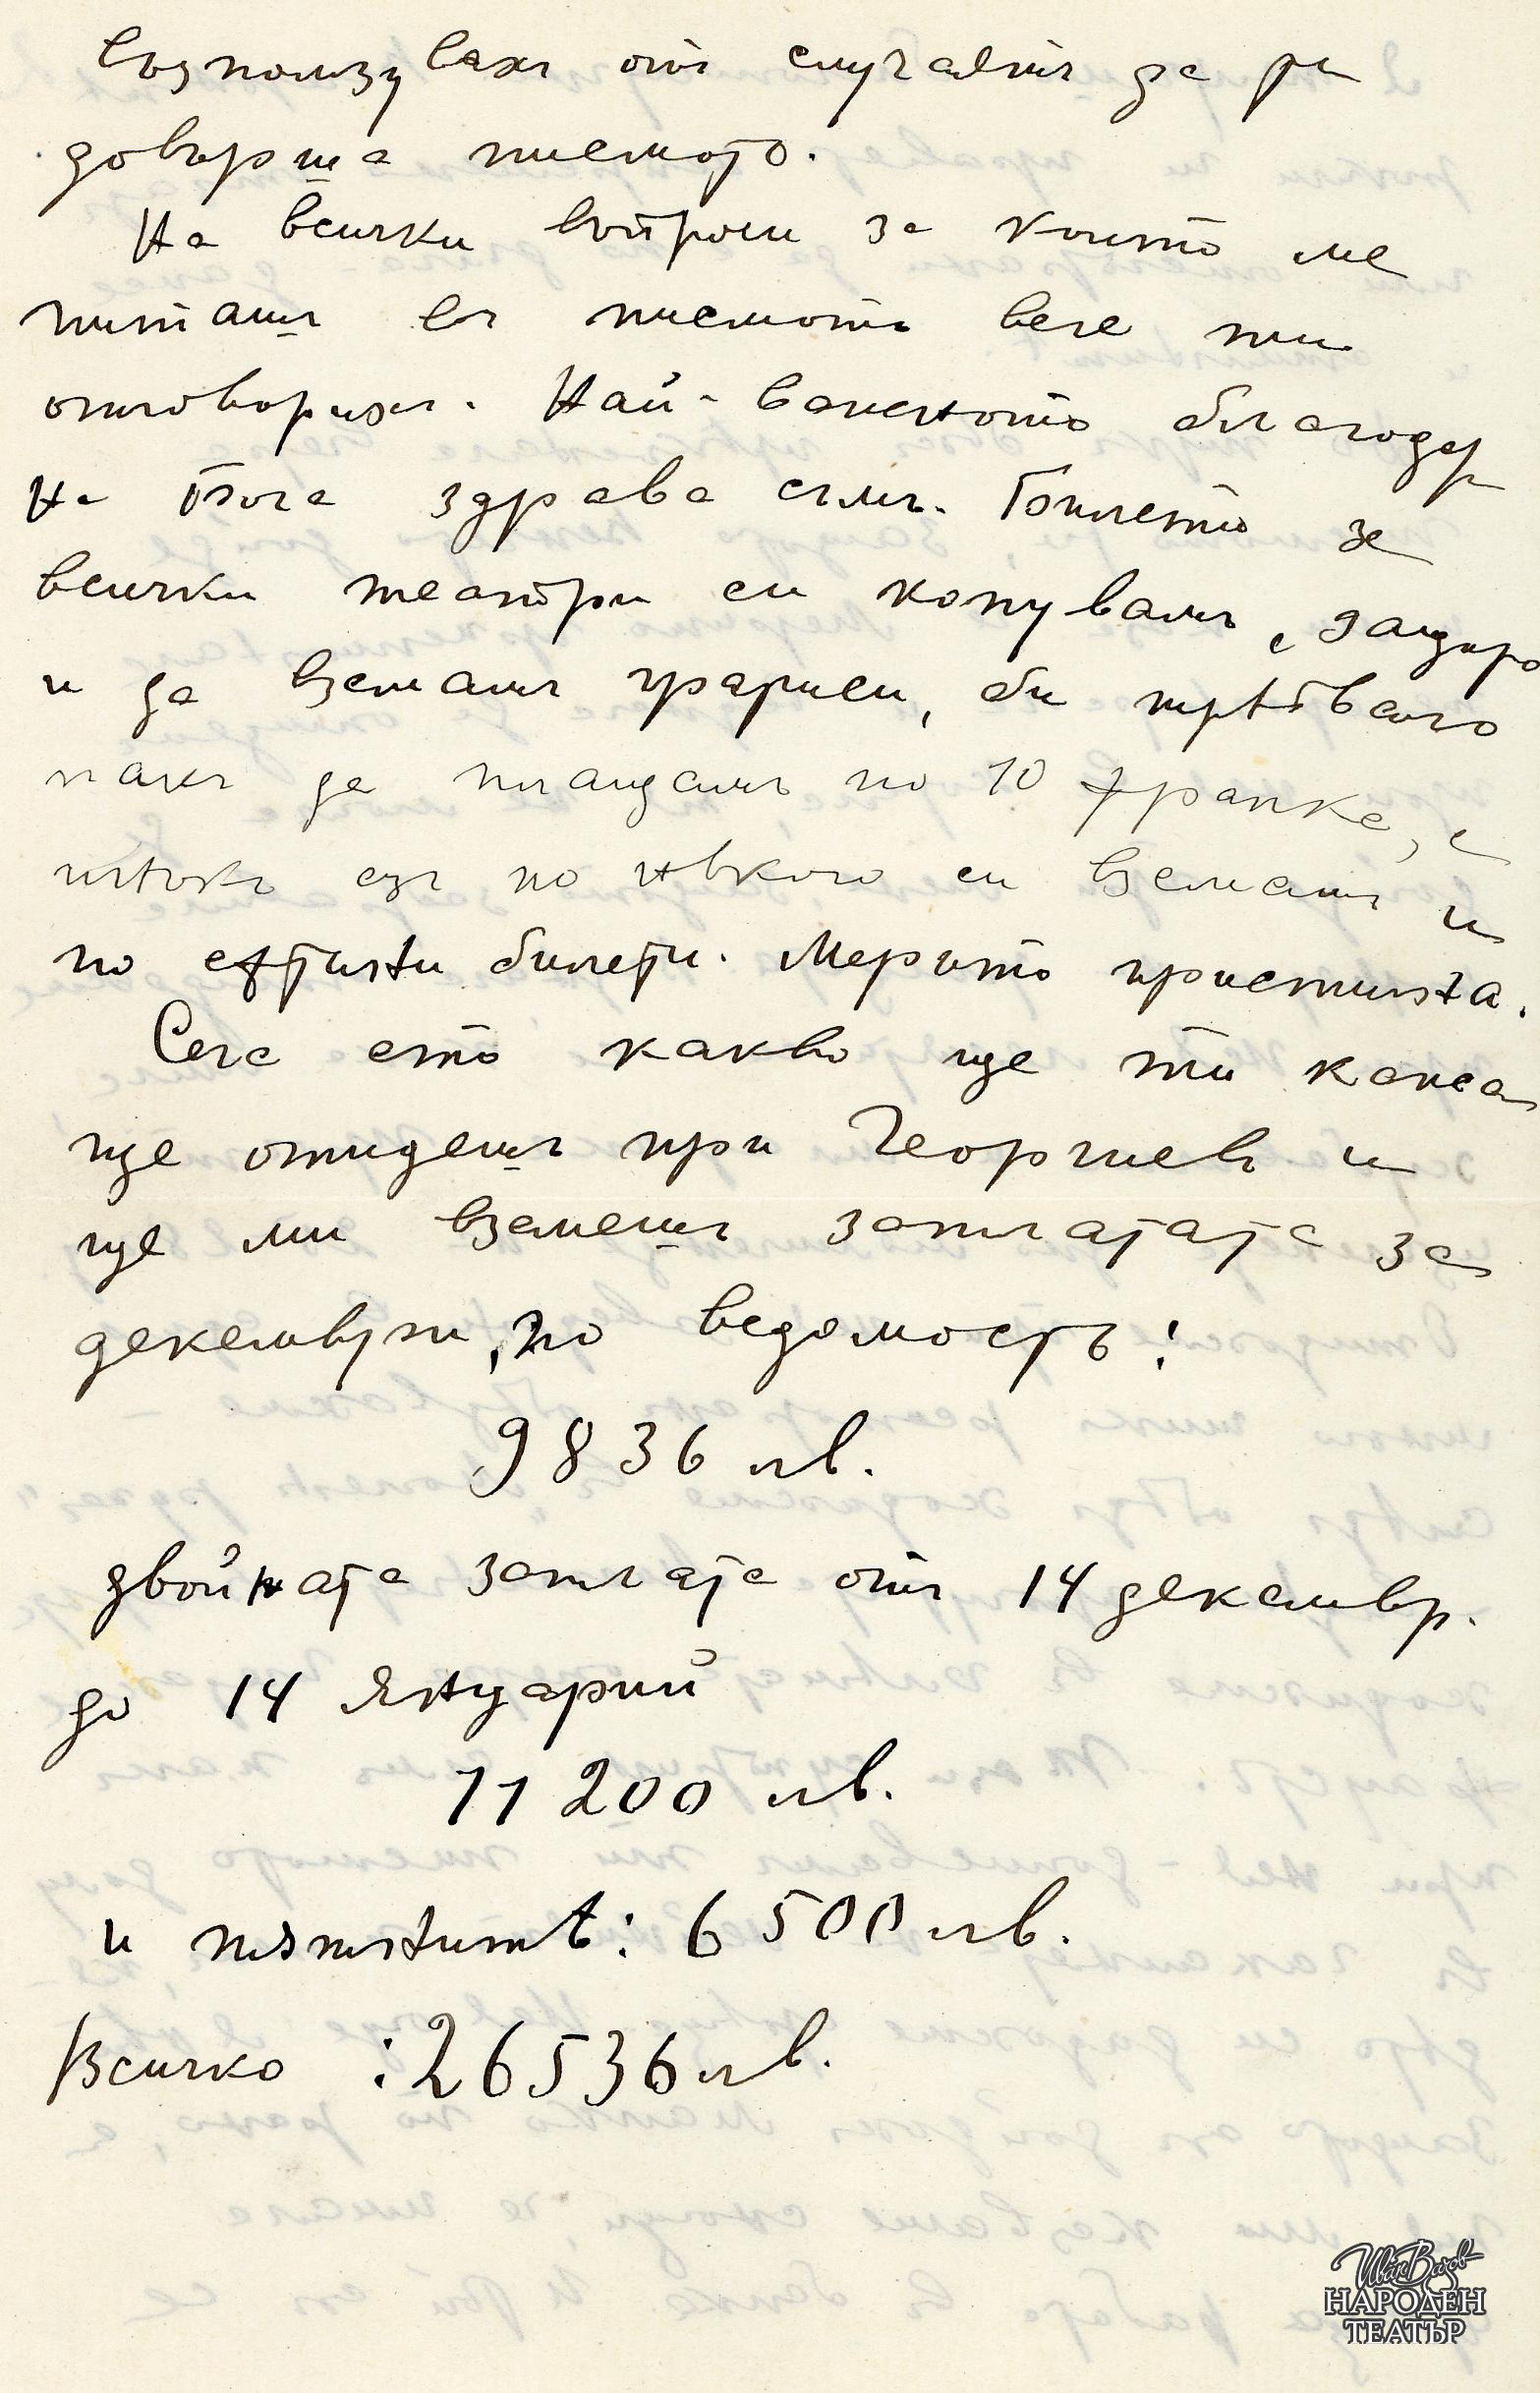 възползувахъ отъ случаятъ да ти
довърша писмото.
На всички въпроси за които ме
питашъ въ писмото вече ти
отговорихъ. Най-важното благодар
на Бога здрава съмъ. Билети за
всички театри си купувамъ, защото
и да вземамъ гратиси, би трѣбвало
пакъ да плащамъ по 10 франка, а
пъкъ азъ по нѣкога си вземамъ и
по ефтини билети. Мерито пристигна.
Сега ето какво ще ти кажа
ще отидешъ при Георгиевъ и
ще ми вземешъ заплатата за
декемврий, по ведомость:
9836 лв.
двойната заплата отъ 14 декемвр.
до 14 Януарий
11 200 лв.
и пѫтнитѣ: 6 500 лв.
Всичко : 26536 лв.
Иван Вазов
НАРОДЕН
ТЕАТЪР